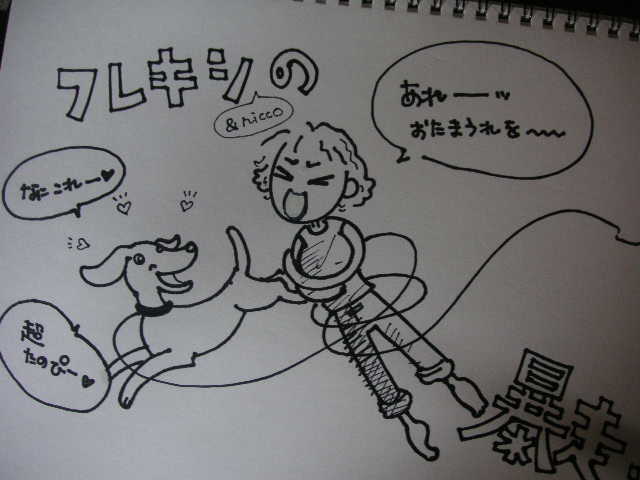 フレキシの
&ricco
あれーーッ
おたまうれを〜〜
なにこれー♥
超
たのぴー♥
暴走